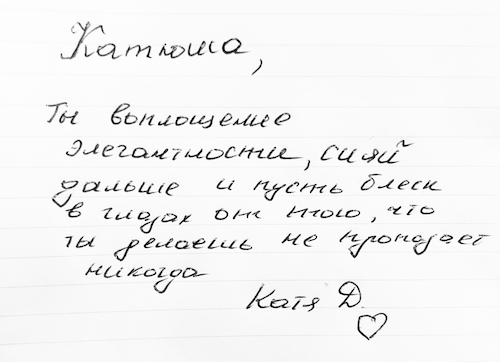 Катюша,
Ты воплощение
элегантности, сияй
дальше и пусть блеск
в глазах от того, что
ты делаешь не пропадает
никогда
Катя Д.